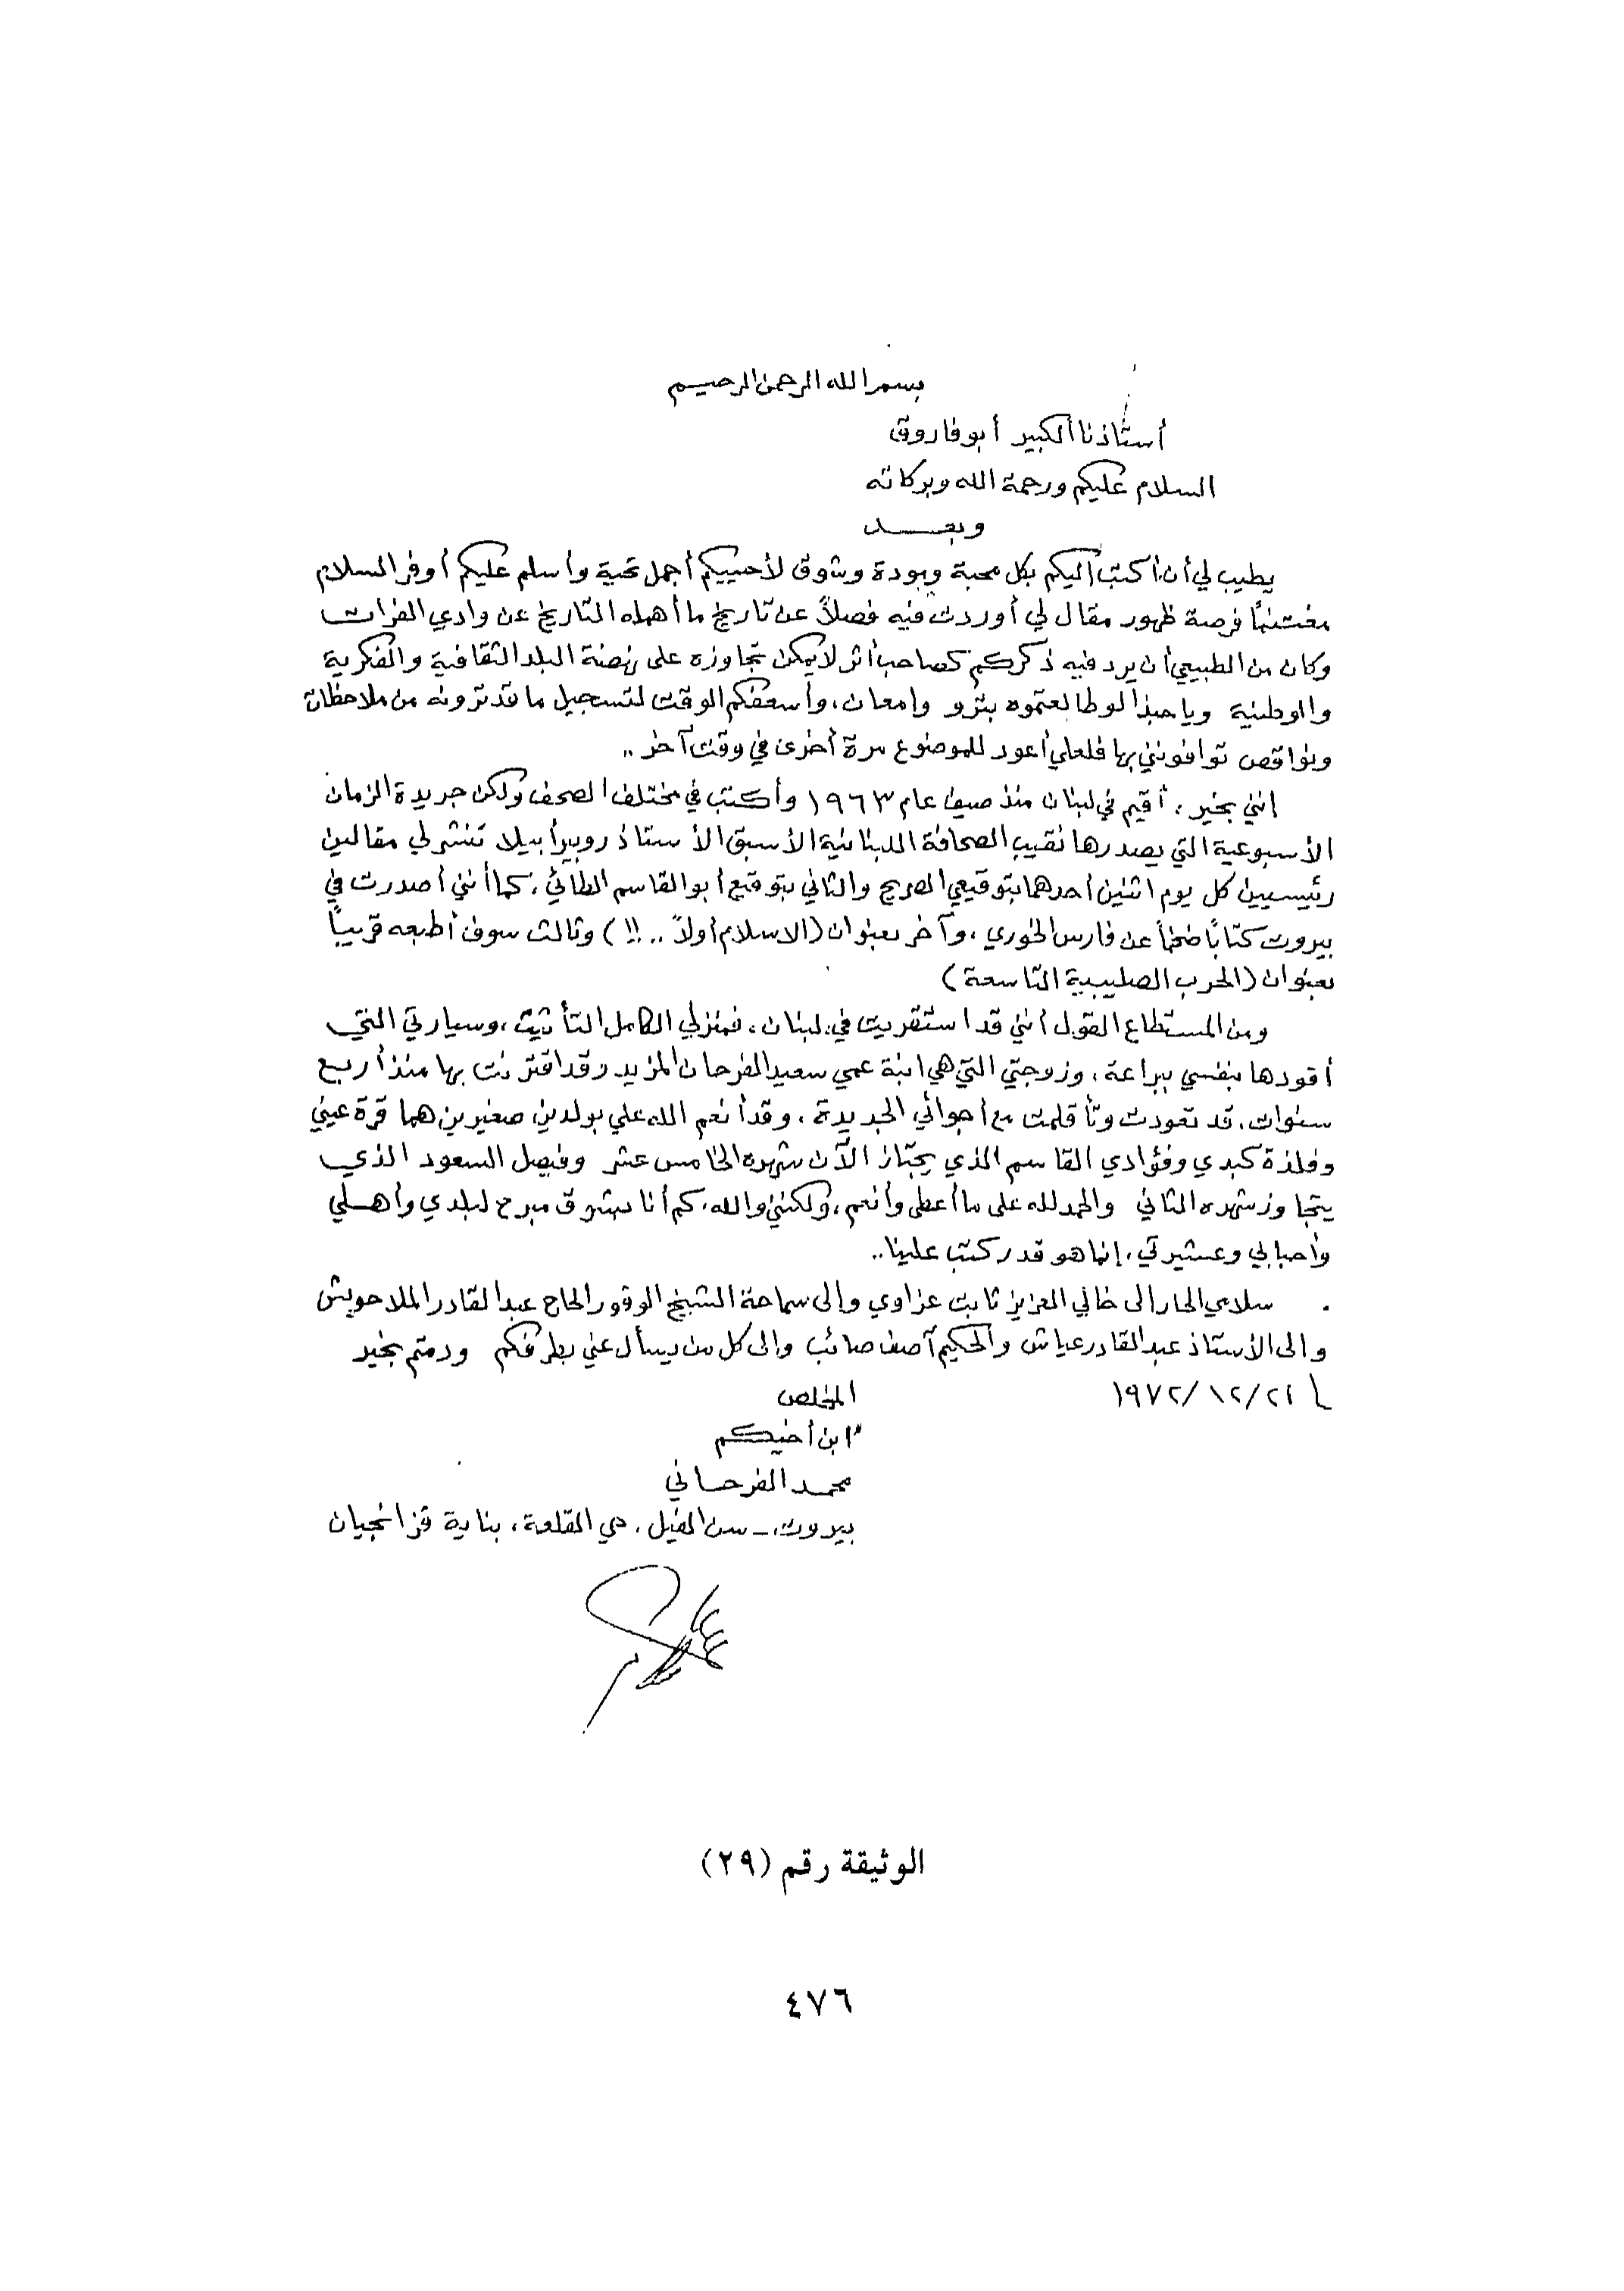 بسم الله الرحمن الرحيم
أستاذنا الكبير أبو فاروق
السلام عليكم ورحمة الله وبركاته
وبعد
يطيب لي أن أكتب اليكم بكل محبة ومودة وشوق لأحييكم أجمل تحية وأسلم عليكم أوفر السلام
مغتنماً فرصة ظهور مقال لي أوردت فيه فصلاً عن تاريخ ما أهمله التاريخ عن وادي الفرات
وكان من الطبيعي أن يرد فيه ذكركم كصاحب أثر لا يمكن تجاوزه على نهضة البلد الثقافية والفكرية
والوطنية وياحبذا لو طالعتموه بترو وامعان، وأسعفكم الوقت لتسجيل ما قد ترونه من ملاحظات
ونواقص توافونني بها فلعلي أعود للموضوع مرة أخرى في وقت آخر ..
انني بخير، أقيم في لبنان منذ صيف عام ١٩٦٣ وأكتب في مختلف الصحف ولكن جريدة الزمان
الأسبوعية التي يصدرها نقيب الصحافة اللبنانية الأسبق الأستاذ روبير أبيلا تنشر لي مقالين
رئيسيين كل يوم اثنين أحدهما بتوقيعي الصريح والثاني بتوقيع أبو القاسم الطائي، كما أنني أصدرت في
بيروت كتاباً ضخماً عن فارس الخوري، وآخر بعنوان (الاسلام أولاً .. !!) وثالث سوف أطبعه قريباً
بعنوان (الحرب الصليبية التاسعة)
ومن المستطاع القول أنني قد استقريت في لبنان، فمنزلي الكامل التأثيث، وسيارتي التي
أقودها بنفسي ببراعة، وزوجتي التي هي ابنة عمي سعيد الفرحان المزيد وقد اقترنت بها منذ أربع
سنوات، قد تعودت وتأقلمت مع أجوائي الجديدة، وقد أنعم الله علي بولدين صغيرين هما قرة عيني
وفلذة كبدي وفؤادي القاسم الذي يجتاز الآن شهره الخامس عشر وفيصل السعود الذي
يتجاوز شهره الثاني والحمد لله على ما أعطى وأنعم، ولكنني والله، كم أنا بشوق مبرح لبلدي وأهلي
وأحبابي وعشيرتي، إنما هو قدر كتب علينا..
سلامي الحار الى خالي العزيز ثابت عزاوي والى سماحة الشيخ الوقور الحاج عبد القادر الملا حويش
والى الأستاذ عبد القادر عياش والحكيم آصف صائب والى كل من يسأل عني بطرفكم ودمتم بخير
١٩٧٢/١٢/٢١
المخلص
ابن أخيكم
محمد الفرحاني
بيروت - سن الفيل، حي القلعة، بناية قزانجيان
الوثيقة رقم (٢٩)
٤٧٦